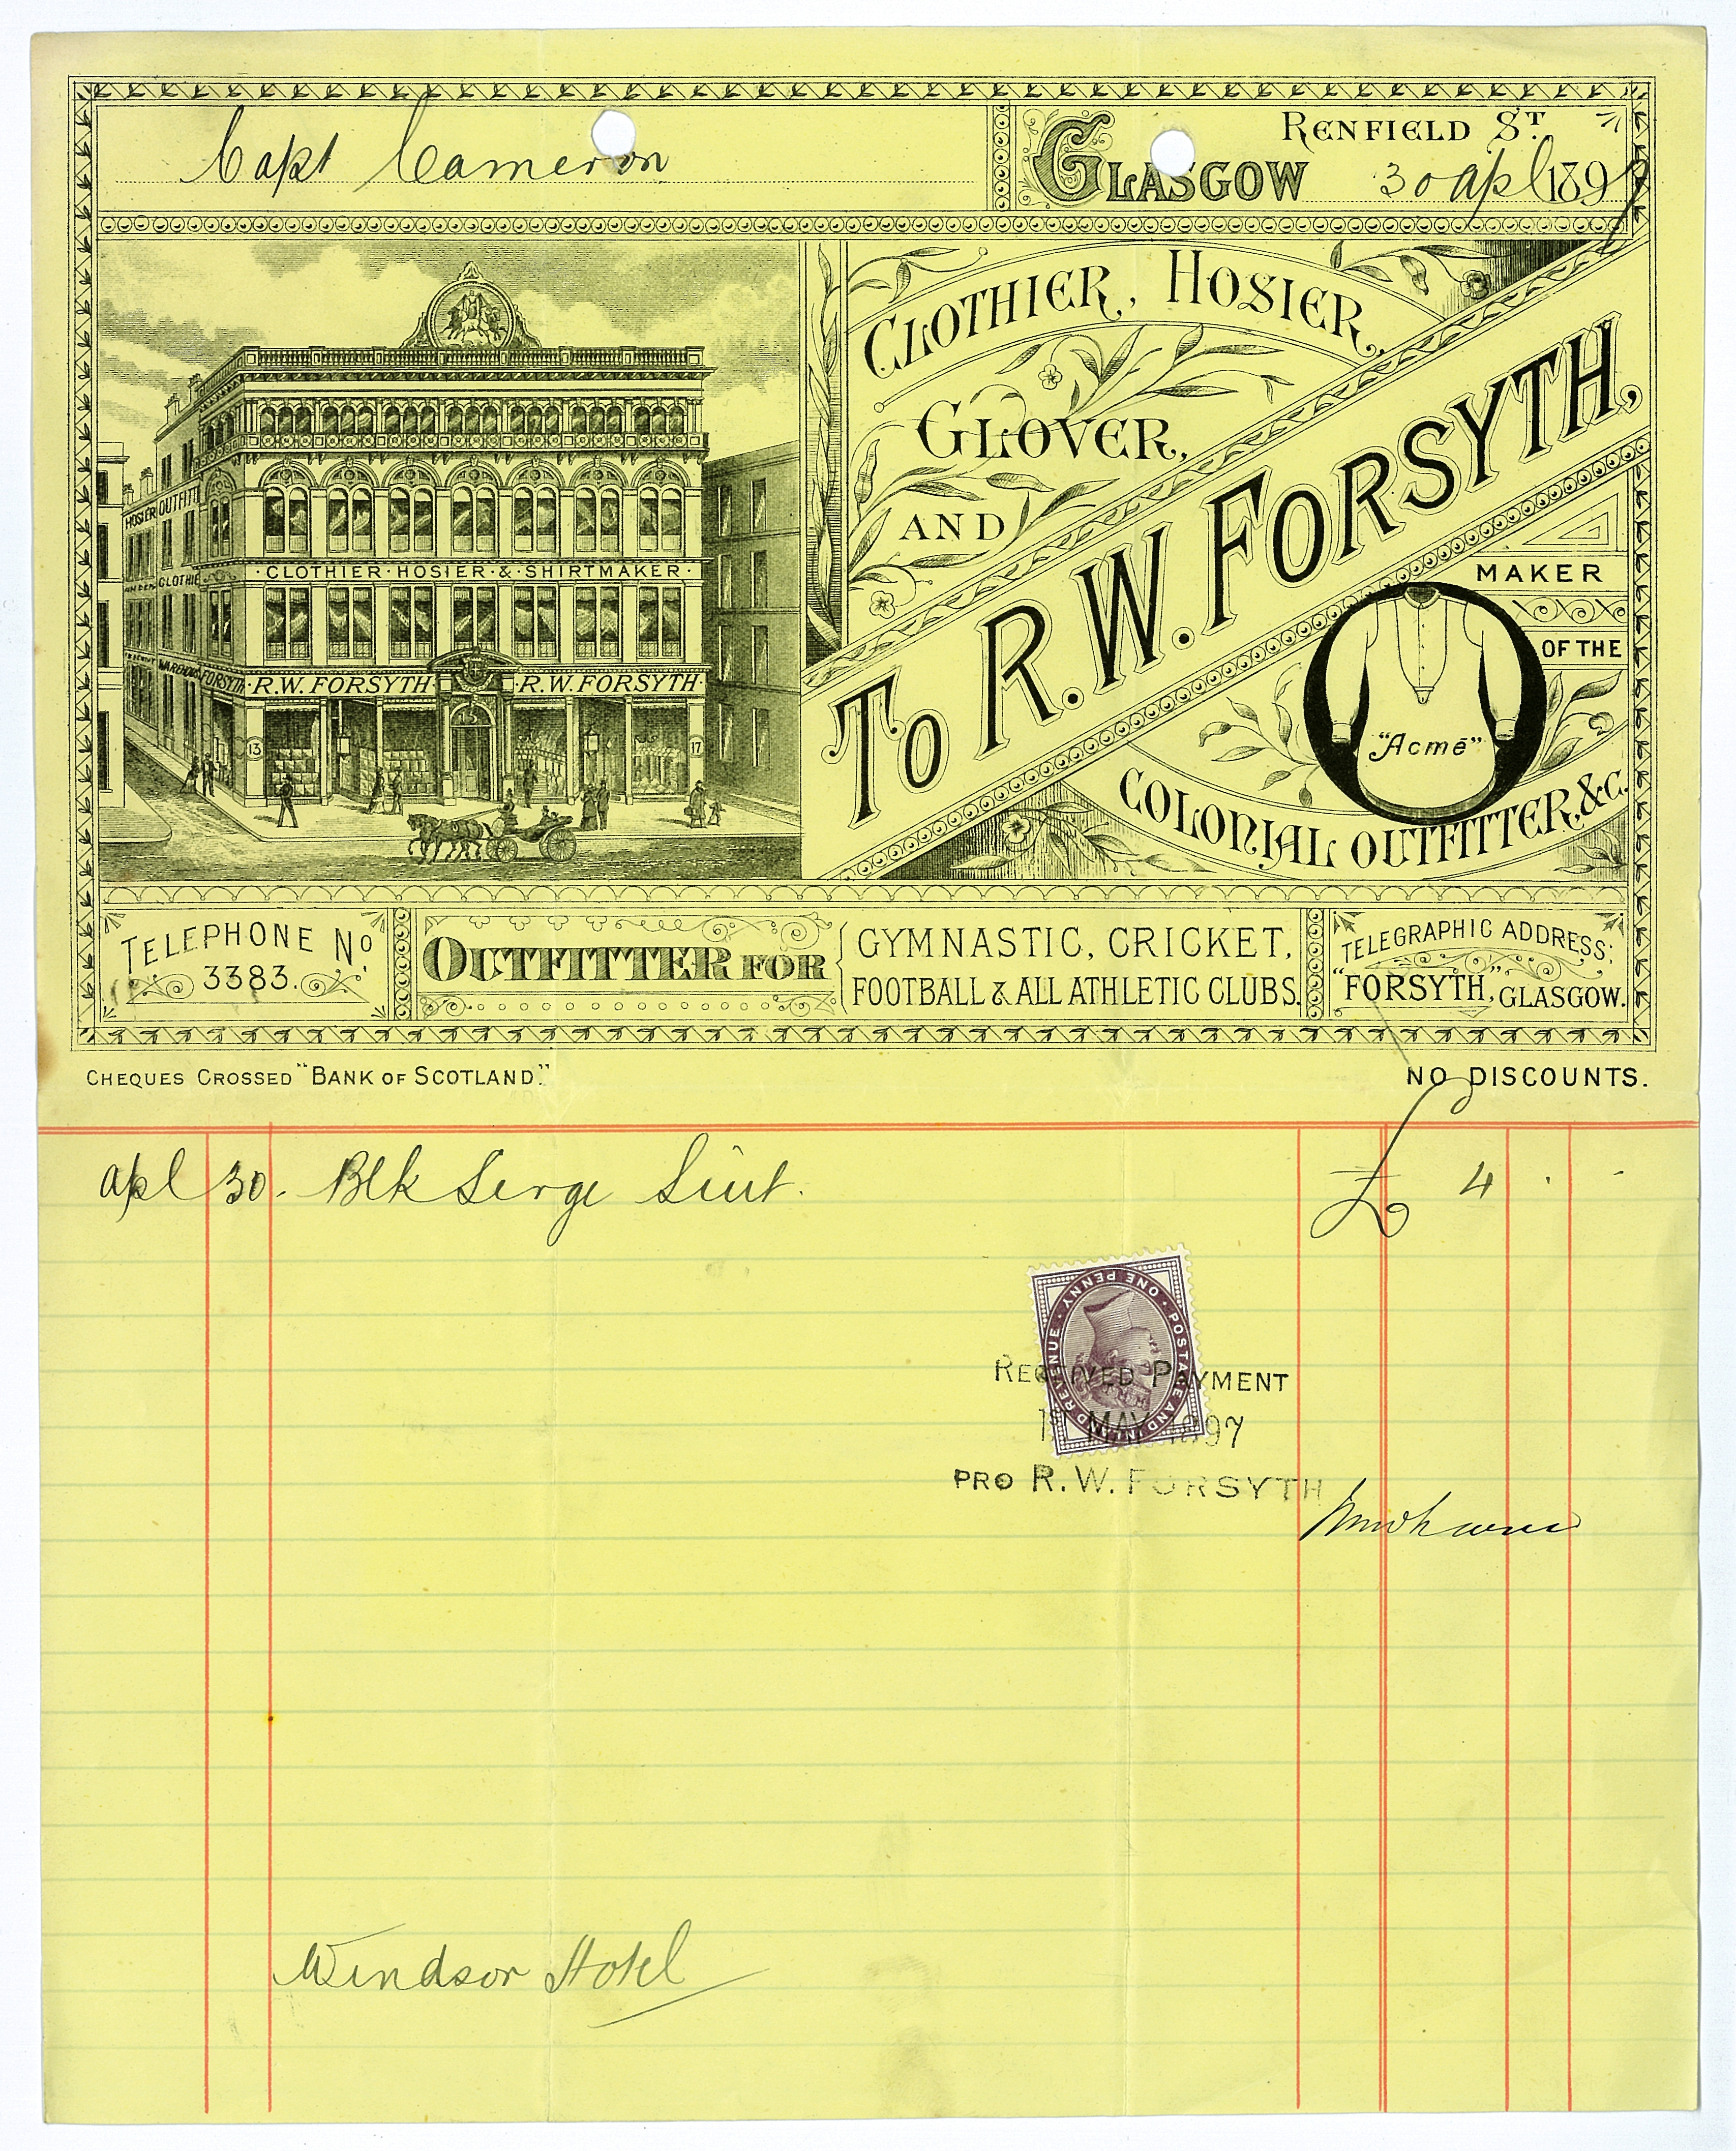 Capt Cameron
RENFIELD ST.
GLASGOW 30 apl 1897
CLOTHIER, HOSIER,
GLOVER,
AND
TO R.W. FORSYTH,
MAKER
OF THE
"Acmé"
COLONIAL OUTFITTER, &C.
HOSIER OUTFITT
CLOTHIE
·CLOTHIER·HOSIER·&·SHIRTMAKER·
WAREHOUS
FORSYTH
·R.W. FORSYTH·
·R.W. FORSYTH·
13
15
17
TELEPHONE No
3383.
OUTFITTER FOR
GYMNASTIC, CRICKET,
FOOTBALL & ALL ATHLETIC CLUBS.
TELEGRAPHIC ADDRESS:
"FORSYTH," GLASGOW.
CHEQUES CROSSED "BANK OF SCOTLAND."
NO DISCOUNTS.
apl 30. Blk Serge Suit. £ 4 . -
POSTAGE AND INLAND REVENUE · ONE PENNY ·
RECEIVED PAYMENT
1 MAY 1897
PRO R.W. FORSYTH
Windsor Hotel